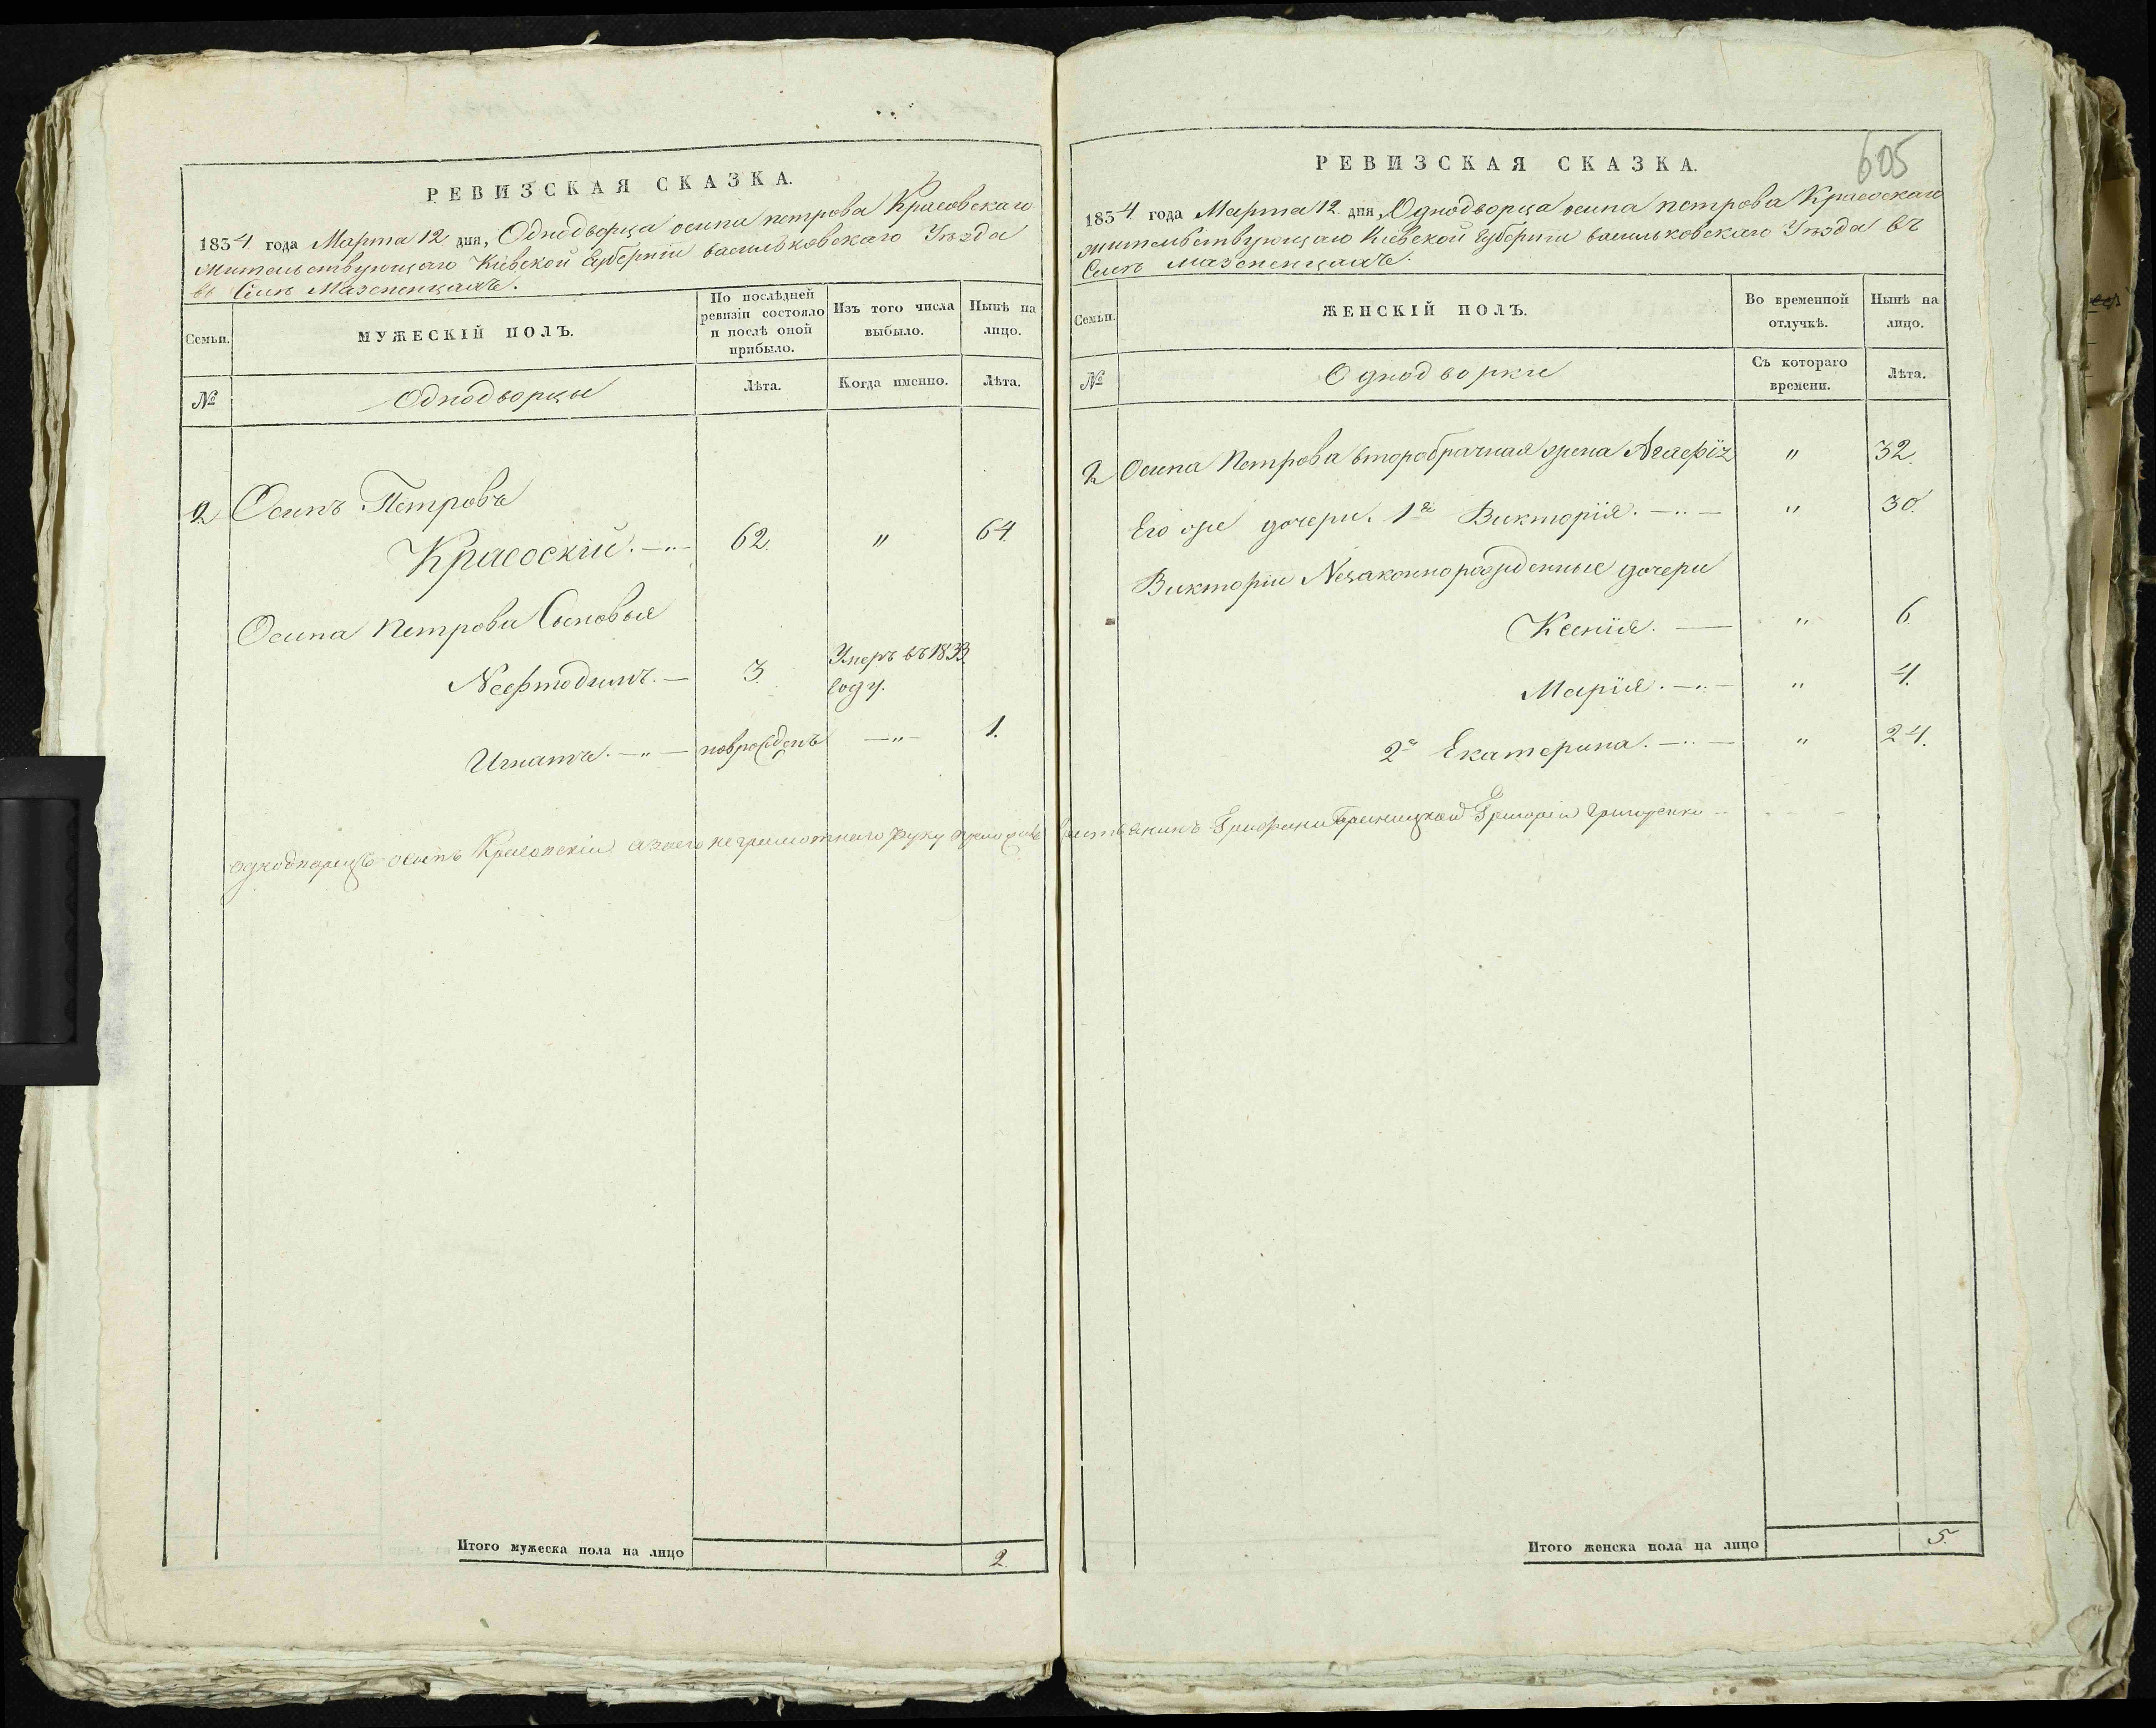 РЕВИЗСКАЯ СКАЗКА.
1834 года Марта 12 дня, Однодворца осипа петрова Красовскаго
жительствующаго Кіевской Губерніи васильковскаго Уѣзда
въ Селѣ Мазепенцахъ.
Семьи.
МУЖЕСКІЙ ПОЛЪ.
По послѣдней ревизіи состояло и послѣ оной прибыло.
Изъ того числа выбыло.
Нынѣ на лицо.
№
Однодворцы
Лѣта.
Когда именно.
Лѣта.
2 Осипъ Петровъ
Красоскій. —„— 62. „ 64
Осипа петрова Сыновья
— 3. Умеръ въ 1833 году.
Игнатъ. —„— новрожденъ —„— 1.
однодворецъ осипъ а за его неграмотнаго руку приложилъ
Итого мужеска пола на лицо 2
605
РЕВИЗСКАЯ СКАЗКА.
1834 года Марта 12 дня, Однодворца осипа петрова Красоскаго
жительствующаго Кіевской Губерніи васильковскаго Уѣзда въ
Селѣ мазепенцахъ.
Семьи.
ЖЕНСКІЙ ПОЛЪ.
Во временной отлучкѣ.
Нынѣ на лицо.
№
Однодворки
Съ котораго времени.
Лѣта.
2 Осипа Петрова второбрачная жена Агафія „ 32.
Его же дочери. 1я Викторія. —„— „ 30.
Викторіи Незаконнорожденные дочери
Ксенія. — „ 6.
Марія. —„— „ 4.
2я Екатерина. —„— „ 24.
Григорій Григоренко
Итого женска пола на лицо 5.